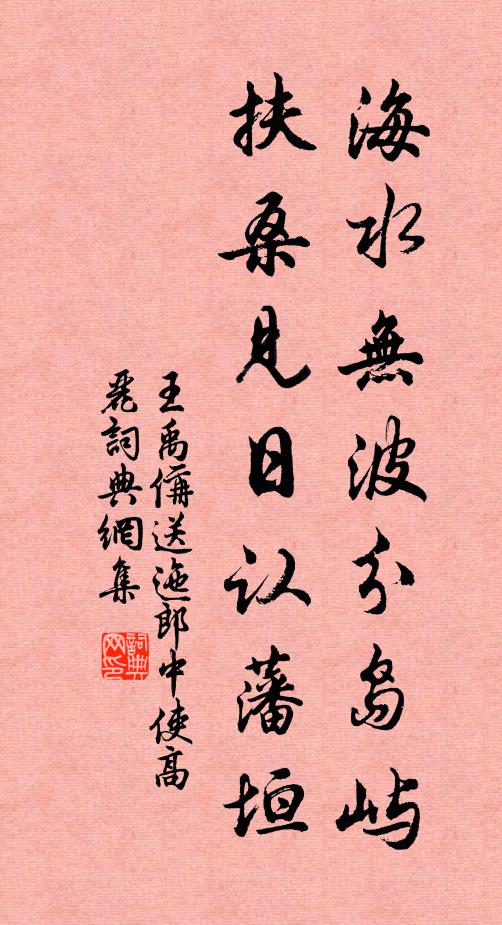 海水無波分島嶼
扶桑見日认藩垣
王禹偁送迤郎中使高
麗詞典網集
詞典
网印